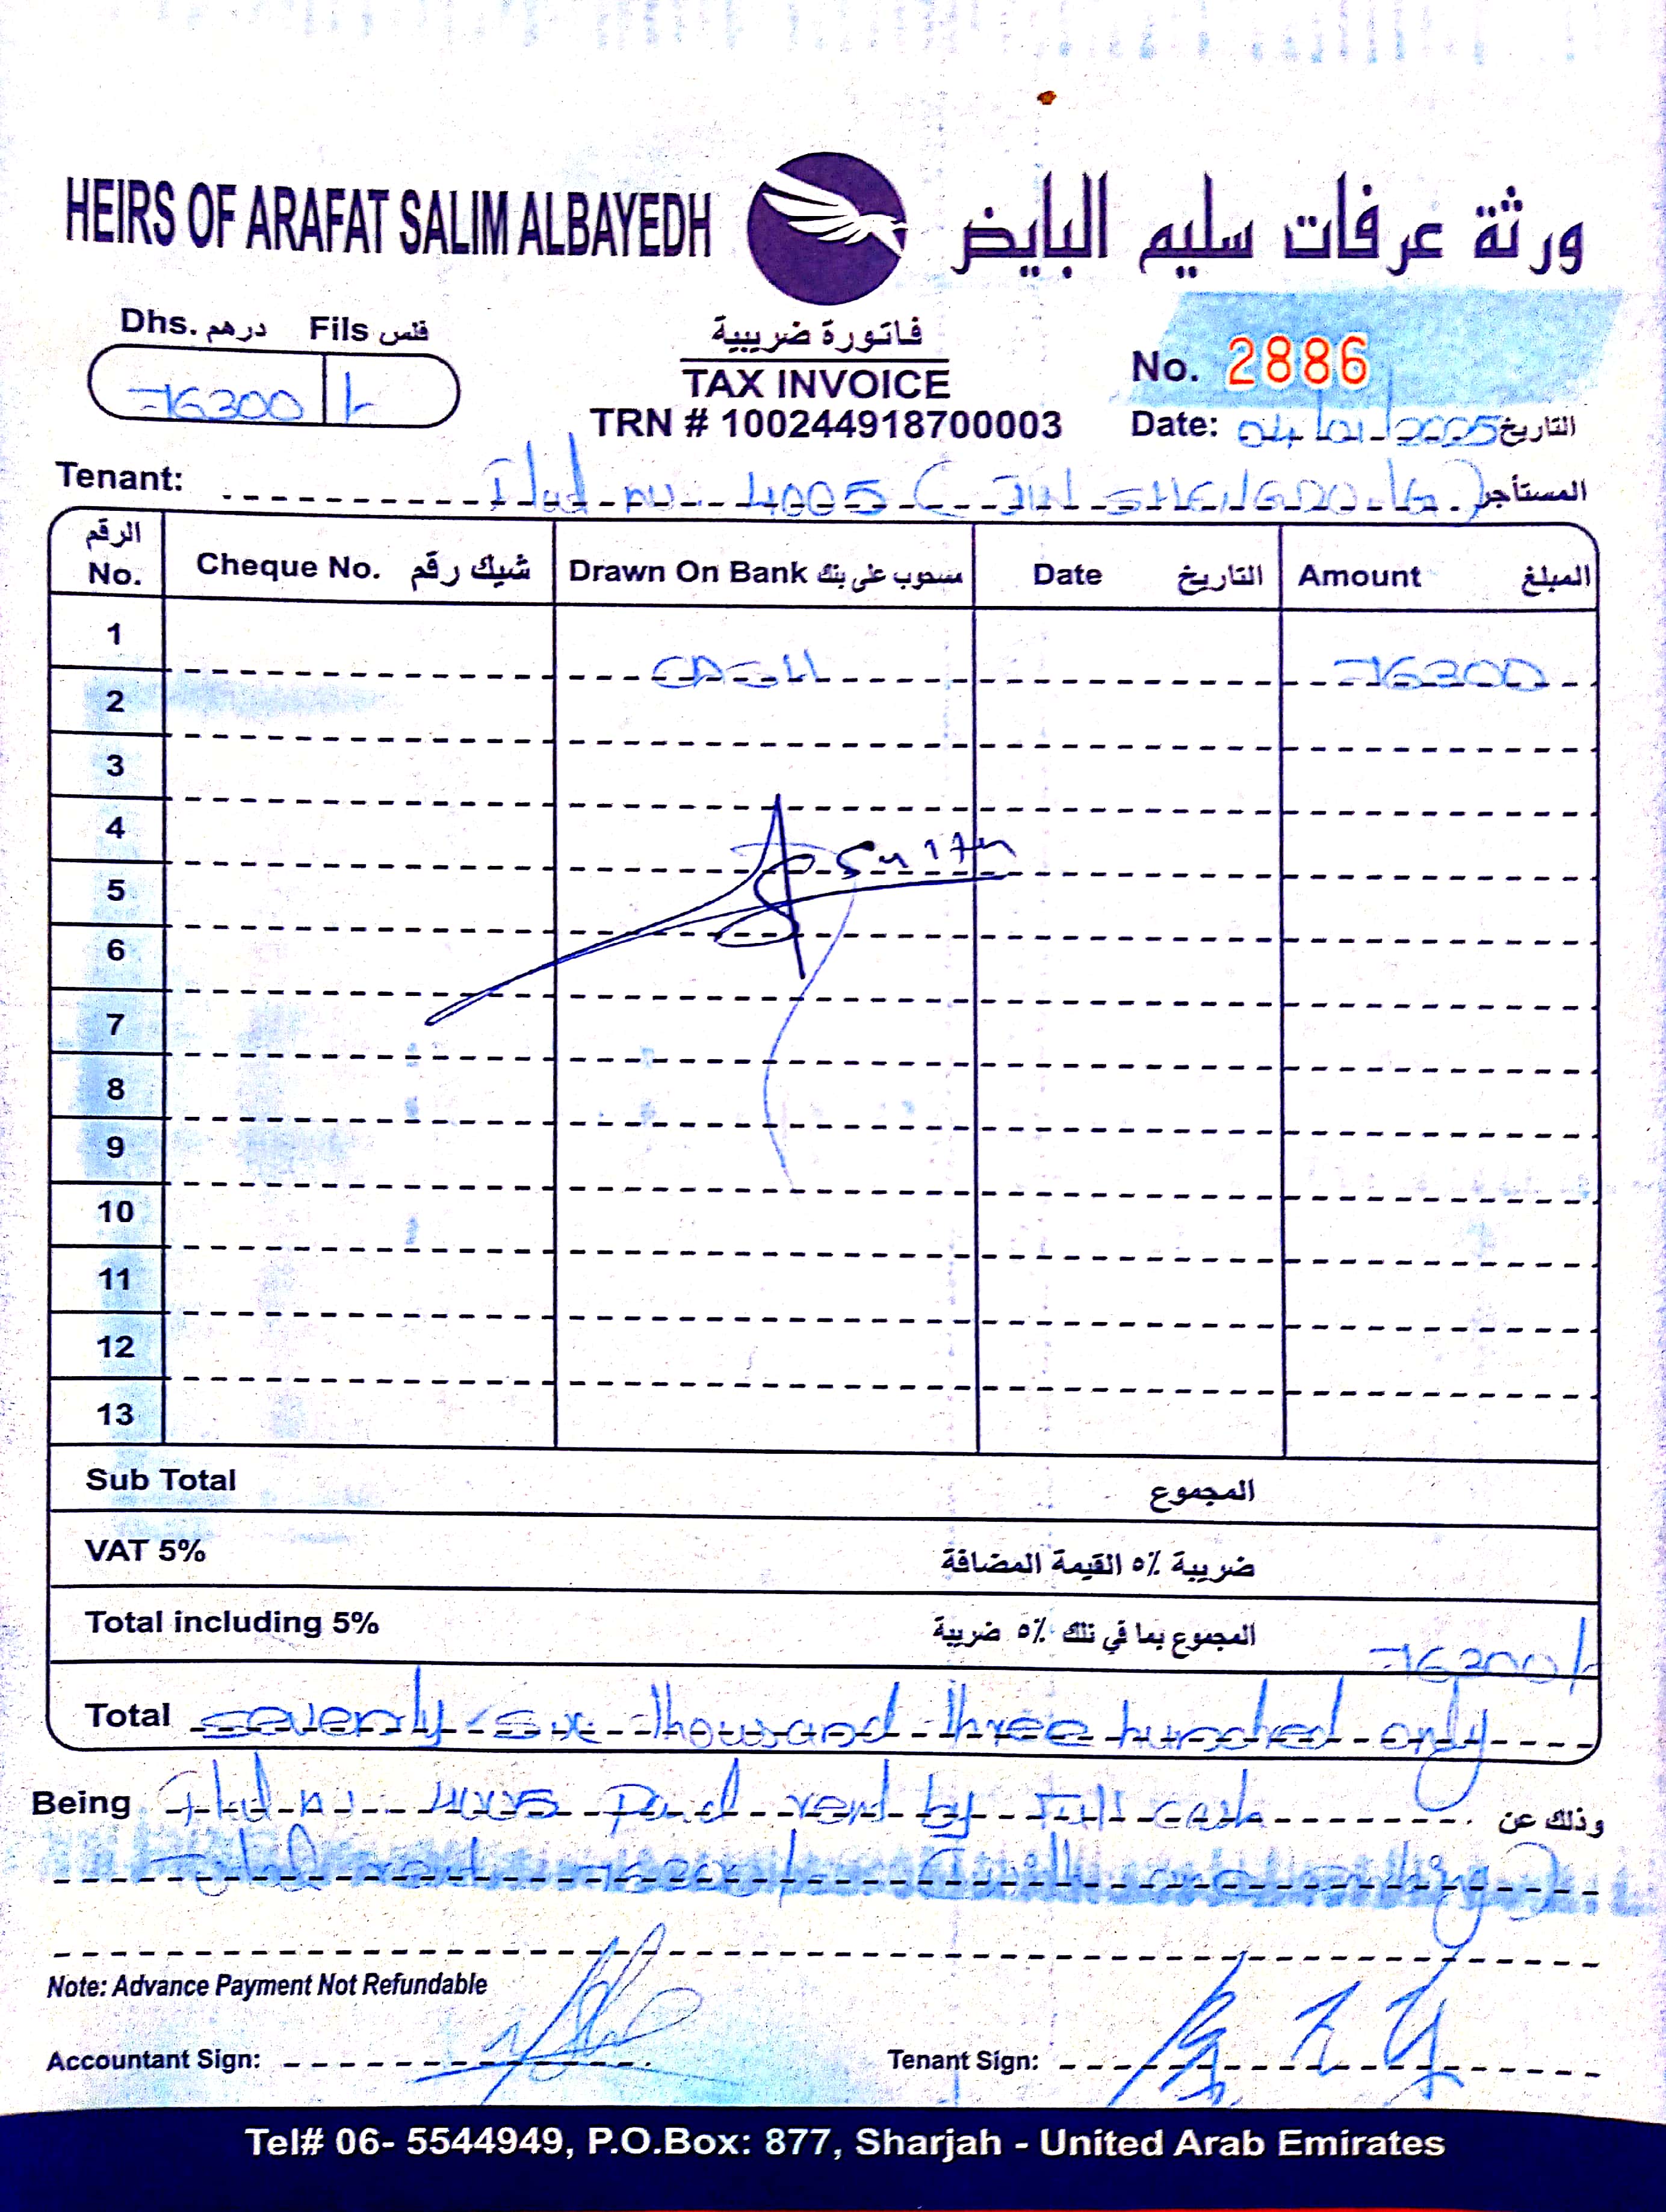 HEIRS OF ARAFAT SALIM ALBAYEDH ورثة عرفات سليم البايض
Dhs. درهم Fils فلس
76300 /-
فاتورة ضريبية
TAX INVOICE
TRN # 100244918700003
No. 2886
Date: 04/01/2025 التاريخ
Tenant: Flat no 4005 ( المستأجر
الرقم No. Cheque No. شيك رقم Drawn On Bank مسحوب على بنك Date التاريخ Amount المبلغ
1 CASH 76300
2
3
4
5
6
7
8
9
10
11
12
13
Sub Total المجموع
VAT 5% ضريبة ٥٪ القيمة المضافة
Total including 5% المجموع بما في ذلك ٥٪ ضريبة 76300/-
Total seventy six thousand three hundred only
Being Flat no 4005 paid rent by Full cash وذلك عن
Total rent 76300/- (with one parking)
Note: Advance Payment Not Refundable
Accountant Sign:
Tenant Sign:
Tel# 06- 5544949, P.O.Box: 877, Sharjah - United Arab Emirates